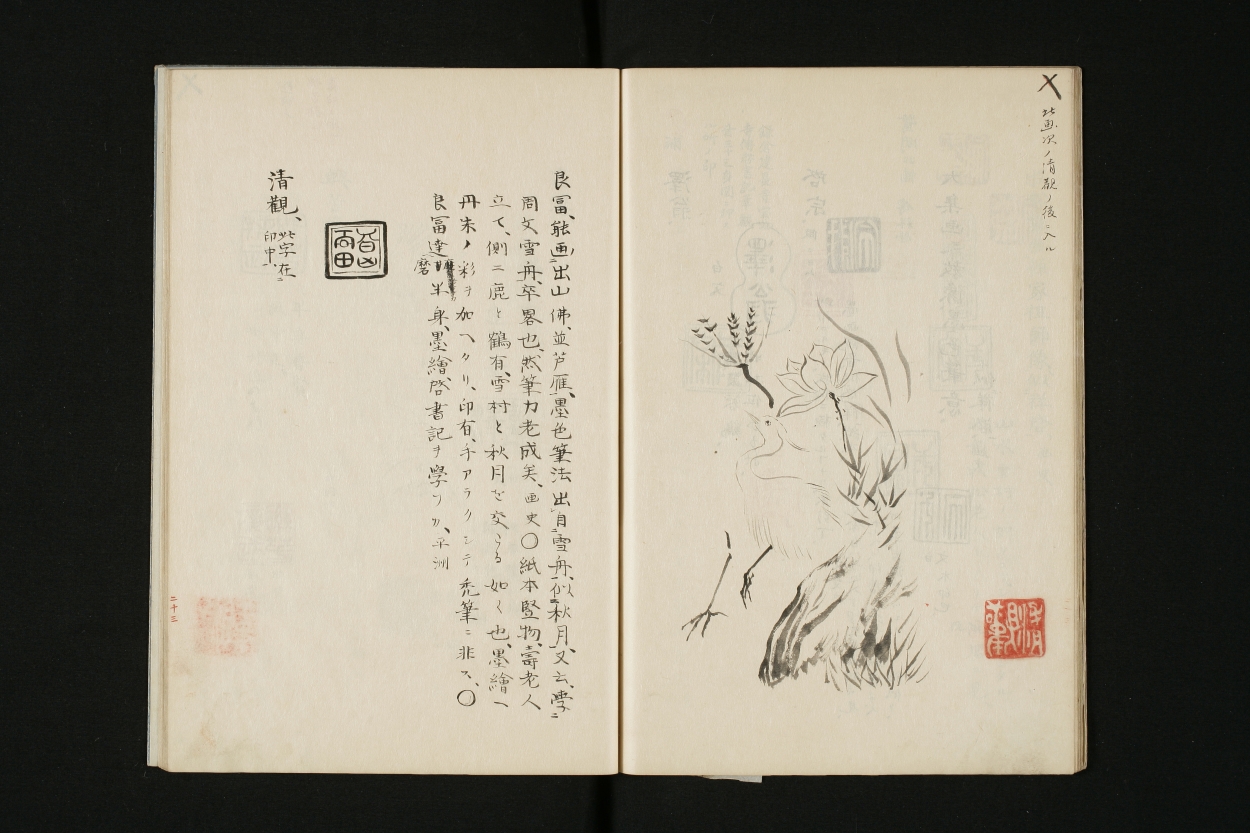 此画次ノ清観ノ後ニ入ル
良冨、能画出山佛、並芦雁、墨色筆法出自雪舟、似秋月、又云、學
周文雪舟、卒畧也、然筆力老成矣、画史〇紙本竪物、壽老人
立て、側ニ鹿と鶴有、雪村と秋月を交うる如く也、墨繪ヘ
丹朱ノ彩ヲ加ヘタリ、印有、手アラクシテ禿筆ニ非ス、〇
良冨達磨半身、墨繪、啓書記ヲ學ソカ、平洲
清觀、此字在印中、
二十三